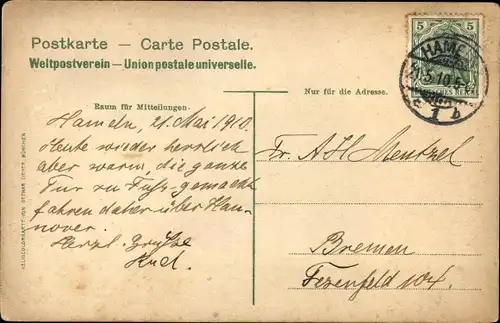 Postkarte — Carte Postale.
Weltpostverein — Union postale universelle.
5 5
HAMELN
21.5.10.5-
DEUTSCHES REICH
1 b
Raum für Mitteilungen.
Nur für die Adresse.
Hameln, 21. Mai 1910.
Heute wieder herrlich
aber warm, die ganze
Tur zu Fuß gemacht
fahren daher über Han-
nover.
Herzl. Grüße
Fr. AH Mentzel
Bremen
Fesenfeld 104.